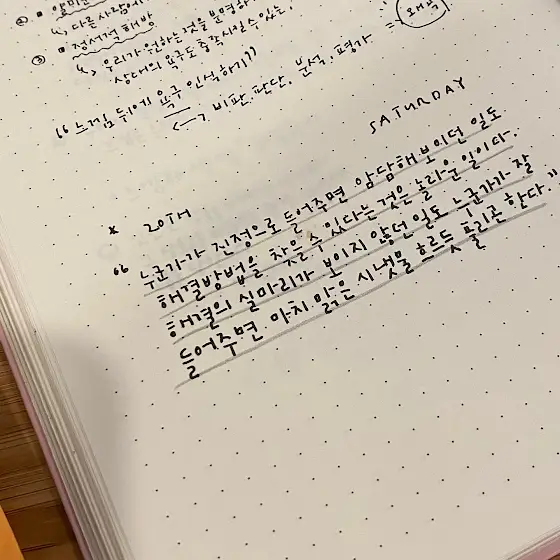 ② ■
↳ 다른 사람에
③ ■ 정서적 해방
↳ 우리가 원하는 것을 분명하
상대의 욕구도 충족시킬 수 있는.
“ 느낌 뒤에 욕구 인식하기 ”
↔ 비판, 판단, 분석, 평가 =>
SATURDAY
* 20TH
“ 누군가가 진정으로 들어주면 암담해 보이던 일도
해결방법을 찾을 수 있다는 것은 놀라운 일이다.
해결의 실마리가 보이지 않던 일도 누군가가 잘
들어주면 마치 맑은 시냇물 흐르듯 풀리곤 한다. ”